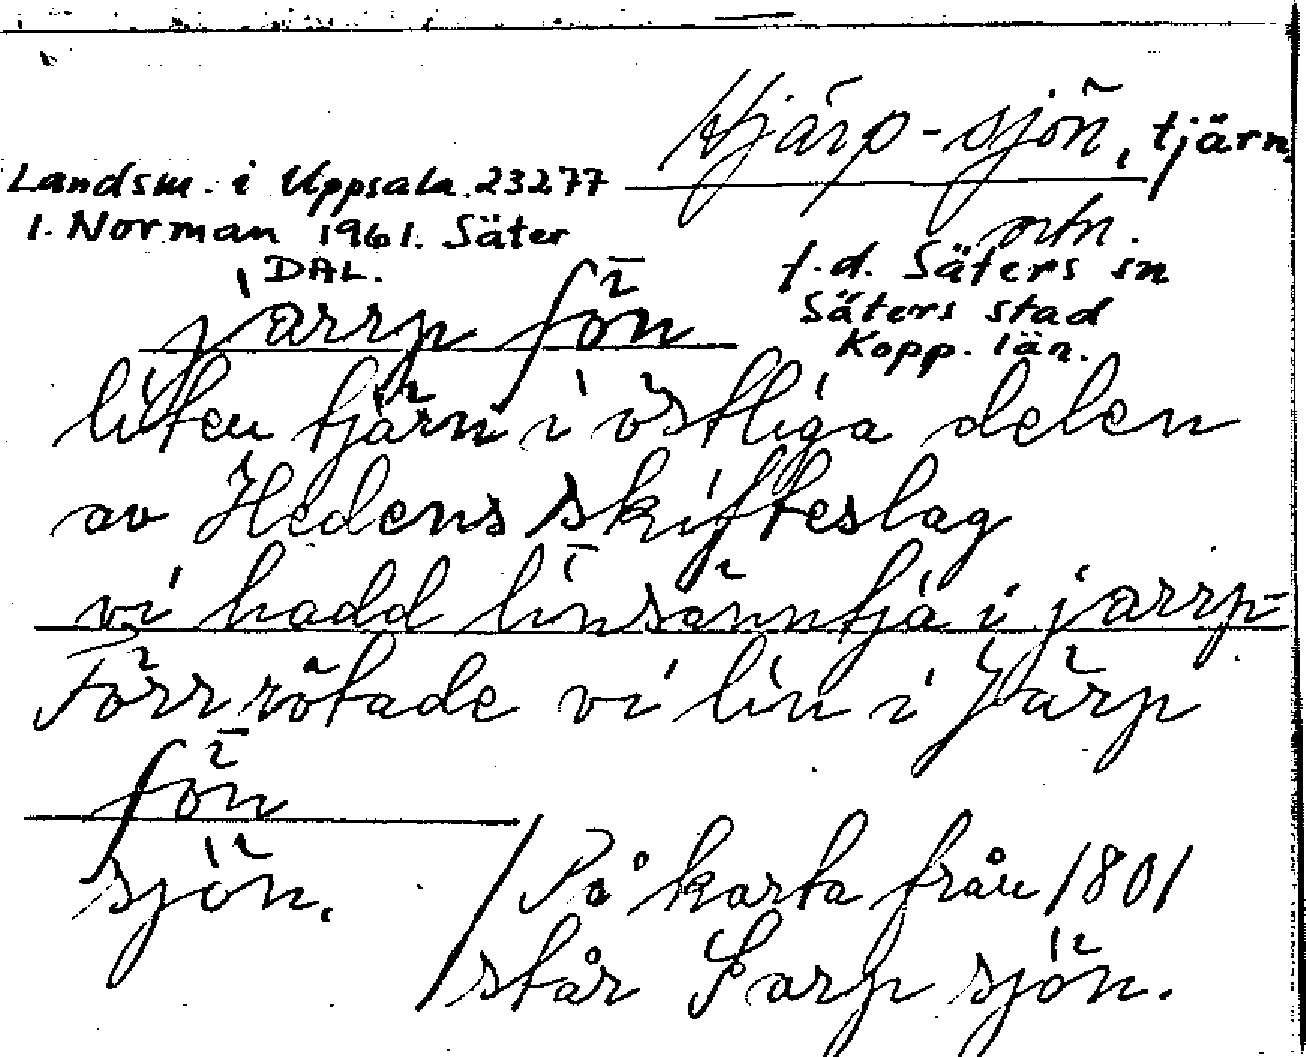 Hjärp-sjön, tjärn
Landsm. i Uppsala 23277
I. Norman 1961. Säter
DAL.
f.d. Säters sn
Säters stad
Kopp. län.
jarrp ʃön
liten tjärn i östliga delen
av Hedens skifteslag
vi hadd linsänntjä i jarrp-
Förr rötade vi lin i Järp
ʃön
sjön. / På karta från 1801
står Jarp sjön.